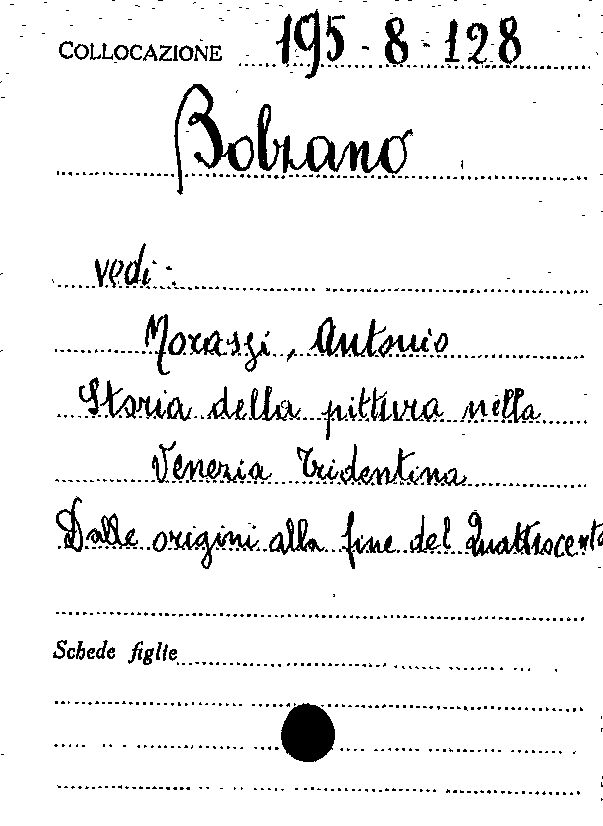 COLLOCAZIONE 195-8-128
Bolzano
vedi:
Morassi, Antonio
Storia della pittura nella
Venezia Tridentina
Dalle origini alla fine del Quattrocento
Schede figlie